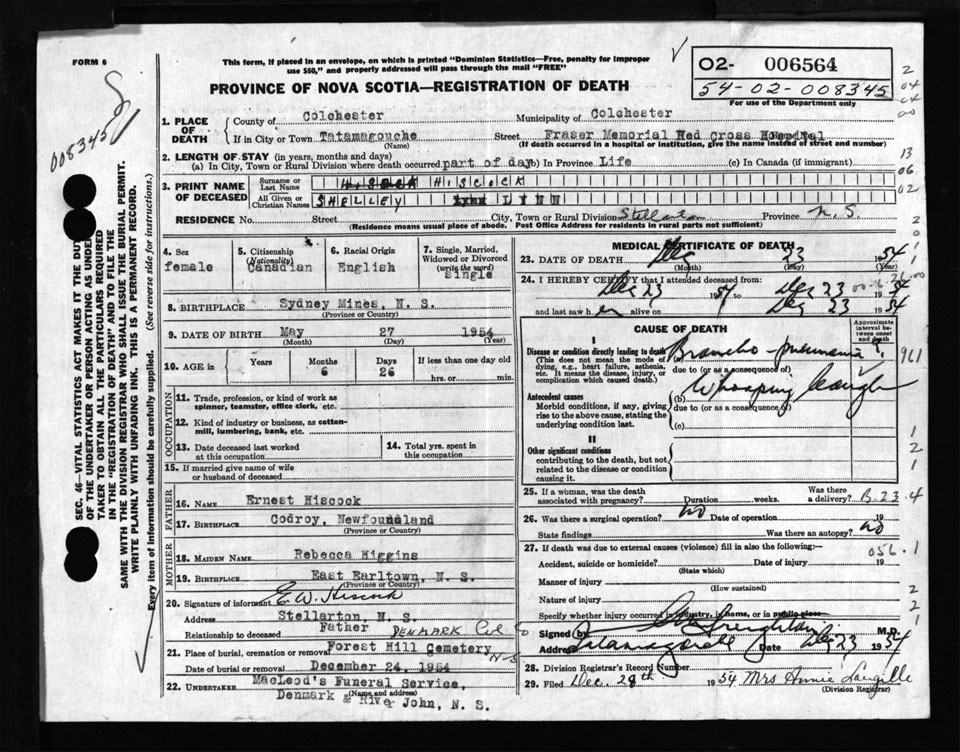 FORM 6
This form, if placed in an envelope, on which is printed "Dominion Statistics—Free, penalty for improper
use $50," and properly addressed will pass through the mail "FREE"
PROVINCE OF NOVA SCOTIA—REGISTRATION OF DEATH
02- 006564
54-02-008345
For use of the Department only
008345
SEC. 46—VITAL STATISTICS ACT MAKES IT THE DUTY
OF THE UNDERTAKER OR PERSON ACTING AS UNDER-
TAKER TO OBTAIN ALL THE PARTICULARS REQUIRED
IN THE "REGISTRATION OF DEATH" AND TO FILE THE
SAME WITH THE DIVISION REGISTRAR WHO SHALL ISSUE THE BURIAL PERMIT.
WRITE PLAINLY WITH UNFADING INK. THIS IS A PERMANENT RECORD.
Every item of information should be carefully supplied. (See reverse side for instructions.)
1. PLACE OF DEATH
County of Colchester Municipality of Colchester
If in City or Town Tatamagouche Street Fraser Memorial Red Cross Hospital
(Name) (If death occurred in a hospital or institution, give the name instead of street and number)
2. LENGTH OF STAY (in years, months and days)
(a) In City, Town or Rural Division where death occurred part of day (b) In Province Life (c) In Canada (if immigrant)
3. PRINT NAME OF DECEASED
Surname or Last Name HISCOCK
All Given or Christian Names SHELLEY LYNN
RESIDENCE No. Street City, Town or Rural Division Stellarton Province N.S.
(Residence means usual place of abode. Post Office Address for residents in rural parts not sufficient)
4. Sex
female
5. Citizenship (Nationality)
Canadian
6. Racial Origin
English
7. Single, Married, Widowed or Divorced (write the word)
single
8. BIRTHPLACE Sydney Mines, N. S.
(Province or Country)
9. DATE OF BIRTH May 27 1954
(Month) (Day) (Year)
10. AGE in Years Months 6 Days 26 If less than one day old
hrs. or min.
OCCUPATION
11. Trade, profession, or kind of work as
spinner, teamster, office clerk, etc.
12. Kind of industry or business, as cotton-
mill, lumbering, bank, etc.
13. Date deceased last worked
at this occupation
14. Total yrs. spent in
this occupation
15. If married give name of wife
or husband of deceased
FATHER
16. NAME Ernest Hiscock
17. BIRTHPLACE Codroy, Newfoundland
(Province or Country)
MOTHER
18. MAIDEN NAME Rebecca Higgins
19. BIRTHPLACE East Earltown, N. S.
(Province or Country)
20. Signature of informant E.W. Hiscock
Address Stellarton, N. S.
Relationship to deceased Father
DENMARK Col
21. Place of burial, cremation or removal Forest Hill Cemetery N-S
Date of burial or removal December 24, 1954
22. UNDERTAKER MacLeod's Funeral Service,
(Name and address)
Denmark & River John, N. S.
MEDICAL CERTIFICATE OF DEATH
23. DATE OF DEATH Dec 23 1954
(Month) (Day) (Year)
24. I HEREBY CERTIFY that I attended deceased from:
Dec 23 1954 to Dec 23 1954
and last saw her alive on Dec 23 1954
CAUSE OF DEATH
Approximate interval between onset and death
I
Disease or condition directly leading to death
(This does not mean the mode of
dying, e.g., heart failure, asthenia,
etc. It means the disease, injury, or
complication which caused death.)
Broncho-pneumonia ?
due to (or as a consequence of)
Antecedent causes
Morbid conditions, if any, giving
rise to the above cause, stating the
underlying condition last.
(b) Whooping Cough
due to (or as a consequence of)
(c)
II
Other significant conditions
contributing to the death, but not
related to the disease or condition
causing it.
25. If a woman, was the death associated with pregnancy? Duration weeks. Was there a delivery?
B.23.4
26. Was there a surgical operation? no Date of operation 19
State findings Was there an autopsy? no
27. If death was due to external causes (violence) fill in also the following:—
056.1
Accident, suicide or homicide? Date of injury 19
(State which)
Manner of injury
(How sustained)
Nature of injury
Specify whether injury occurred in industry, in home, or in public place
Signed by Creighton M.D.
Address Tatamagouche Date Dec 23 1954
28. Division Registrar's Record Number
29. Filed Dec. 28th 1954 Mrs Annie Langille
(Division Registrar)